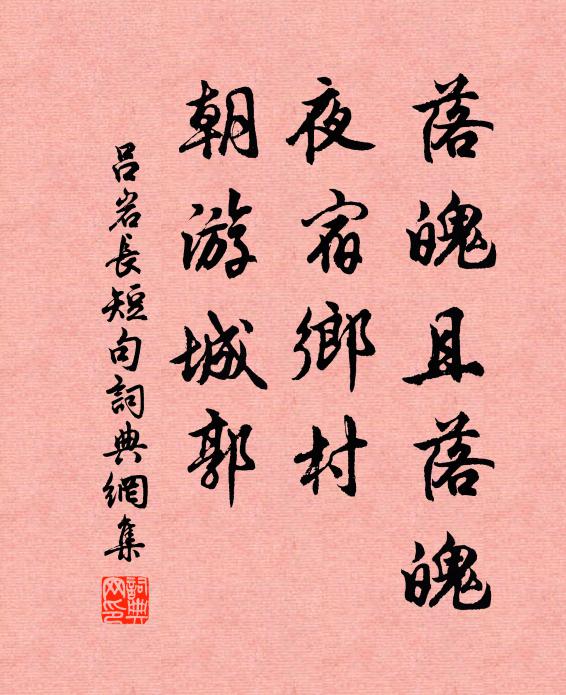 落魄且落魄
夜宿鄉村
朝游城郭
吕岩長短句詞典網集
詞典網印